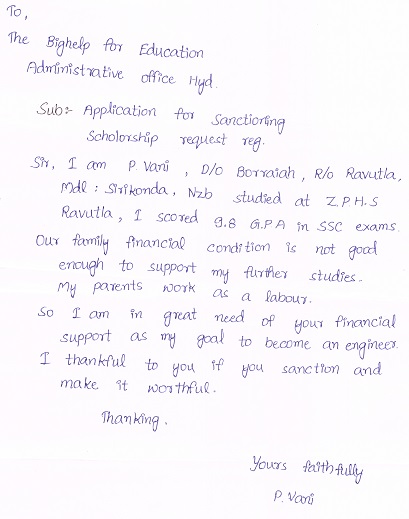 To,
The Bighelp for Education
Administrative office Hyd.
Sub:- Application for Sanctioning
Scholorship request reg.
Sir, I am P. Vani, D/o Borraiah, R/o Ravutla,
Mdl : Sirikonda, Nzb studied at Z.P.H.S
Ravutla, I scored 9.8 G.P.A in SSC exams.
Our family financial condition is not good
enough to support my further studies.
My parents work as a labour.
So I am in great need of your financial
support as my goal to become an engineer.
I thankful to you if you sanction and
make it worthful.
Thanking.
Yours faithfully
P. Vani